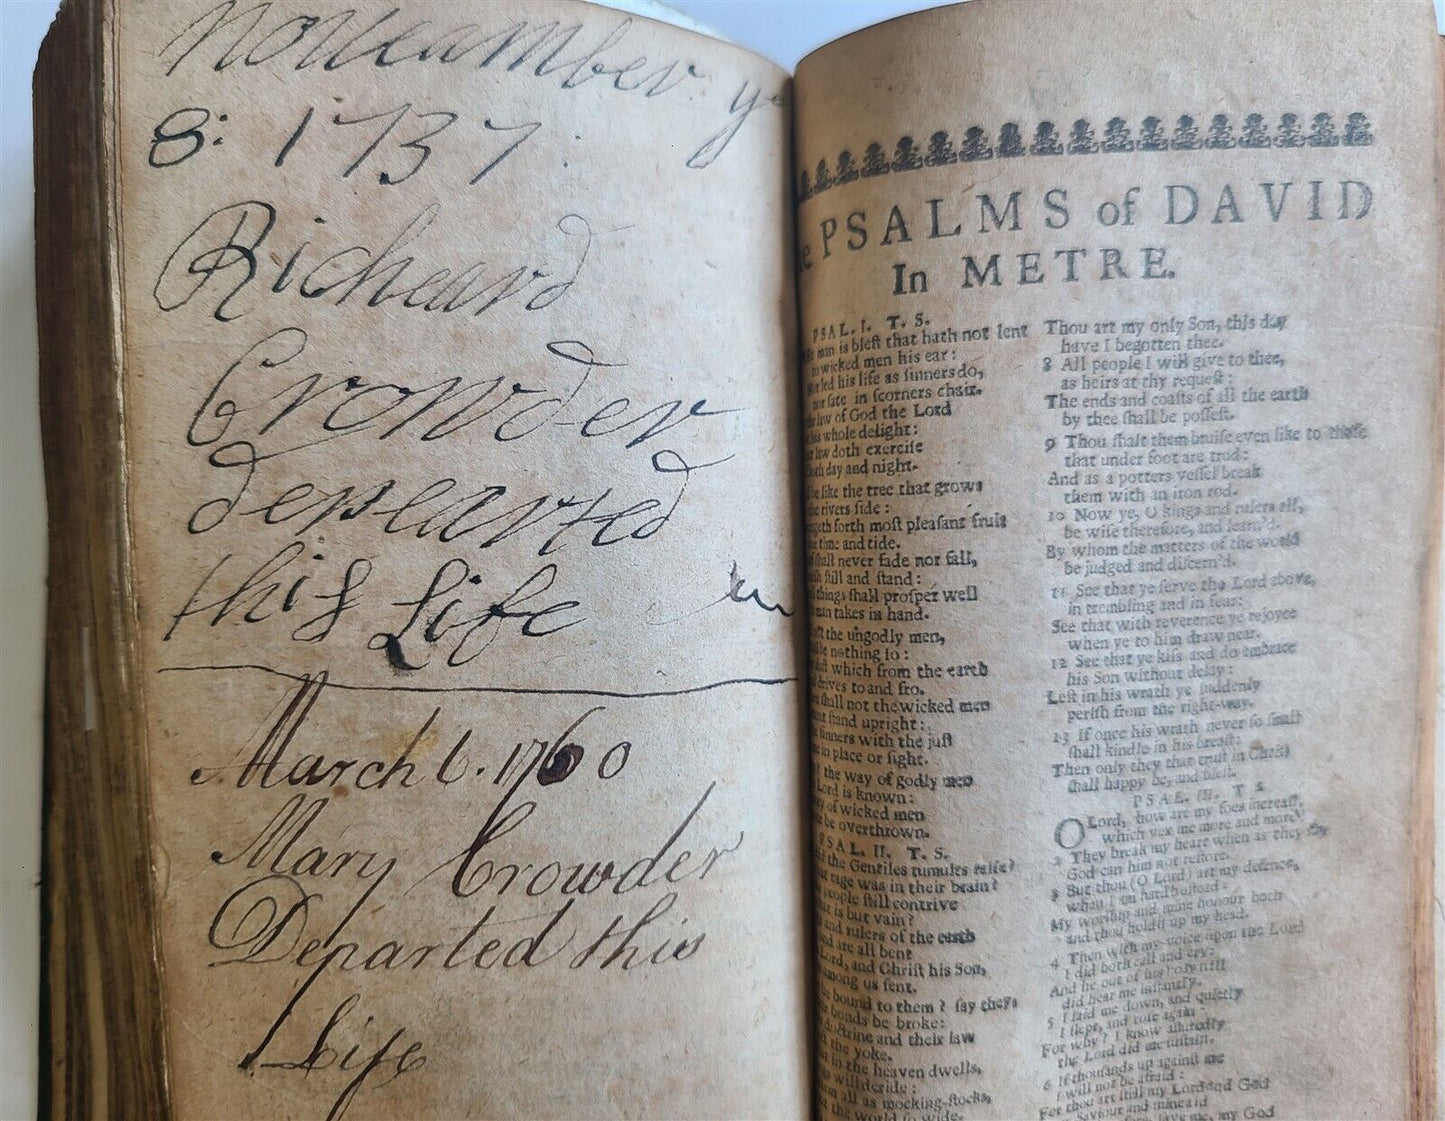 Noueamber ye
8: 1737.
Richeard
Crowder
depearted
this Life in
March 6. 1760
Mary Crowder
Departed this
Life
PSALMS of DAVID
In METRE.
PSAL. I. T. S.
man is blest that hath not lent
to wicked men his ear:
led his life as sinners do,
nor sate in scorners chair.
law of God the Lord
his whole delight:
law doth exercise
day and night.
be like the tree that grows
the rivers side:
forth most pleasant fruit
time and tide.
shall never fade nor fall,
still and stand:
things shall prosper well
man takes in hand.
the ungodly men,
be nothing so:
dust which from the earth
drives to and fro.
shall not the wicked men
stand upright:
sinners with the just
in place or sight.
the way of godly men
Lord is known:
of wicked men
be overthrown.
PSAL. II. T. S.
the Gentiles tumults raise?
rage was in their brain?
people still contrive
is but vain?
and rulers of the earth
and are all bent
Lord, and Christ his Son,
among us sent.
be bound to them? say they:
bonds be broke:
doctrine and their law
the yoke.
in the heaven dwells,
will deride:
all as mocking-stocks,
the world so wide.
Thou art my only Son, this day
have I begotten thee.
8 All people I will give to thee,
as heirs at thy request:
The ends and coasts of all the earth
by thee shall be possest.
9 Thou shalt them bruise even like to those
that under foot are trod:
And as a potters vessel break
them with an iron rod.
10 Now ye, O kings and rulers all,
be wise therefore, and learn'd.
By whom the matters of the world
be judged and discern'd.
11 See that ye serve the Lord above,
in trembling and in fear:
See that with reverence ye rejoyce
when ye to him draw near.
12 See that ye kiss and do embrace
his Son without delay:
Lest in his wrath ye suddenly
perish from the right-way.
13 If once his wrath never so small
shall kindle in his breast:
Then only they that trust in Christ
shall happy be, and blest.
PSAL. III. T S
O Lord, how are my foes increast,
which vex me more and more?
2 They break my heart when as they say
God can him not restore.
3 But thou (O Lord) art my defence,
when I am hard bestead:
My worship and mine honour both
and thou hold'st up my head.
4 Then with my voice upon the Lord
I did both call and cry:
And he out of his holy hill
did hear me instantly.
5 I laid me down, and quietly
I slept, and rose again:
For why? I know assuredly
the Lord did me sustain.
6 If thousands up against me
I will not be afraid:
For thou art still my Lord and God
my God